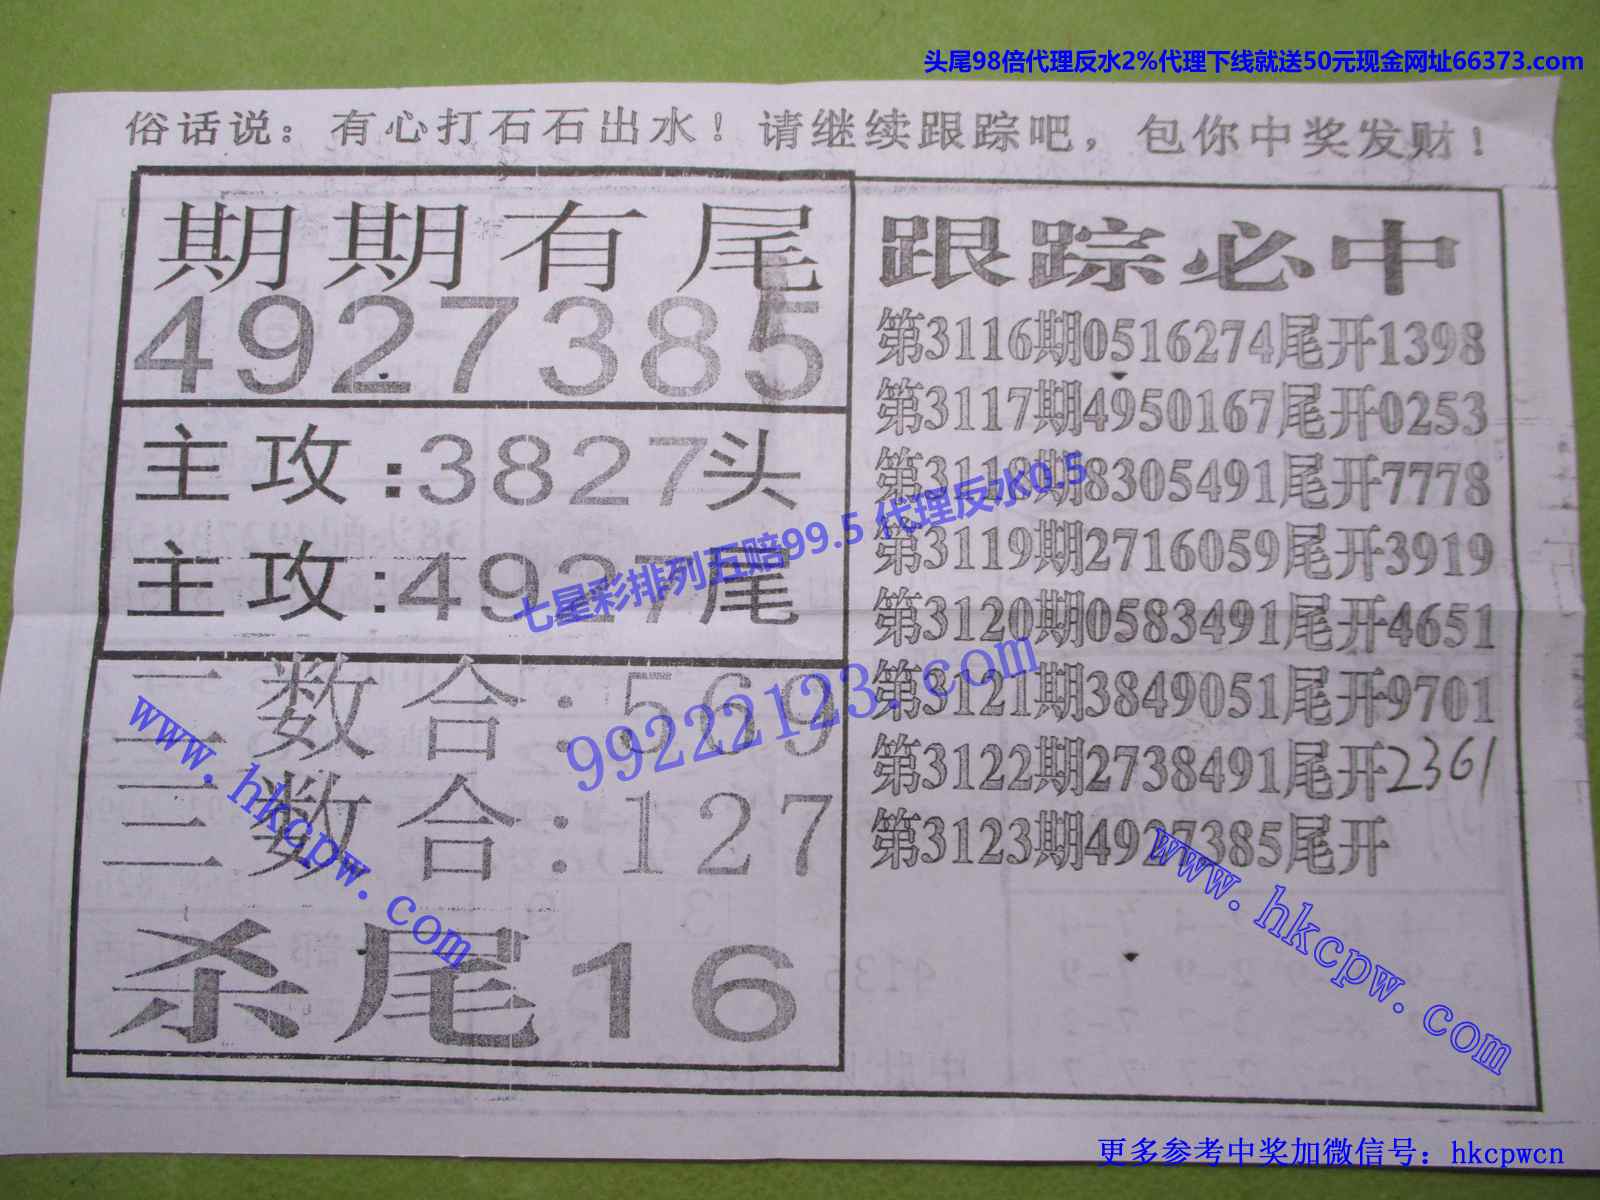 头尾98倍代理反水2%代理下线就送50元现金网址66373.com
俗话说：有心打石石出水！请继续跟踪吧，包你中奖发财！
期期有尾
4927385
主攻:3827头
主攻:4927尾
七星彩排列五赔99.5 代理反水0.5
二数合:569
99222123.com
www.hkcpw.com
三数合:127
杀尾16
跟踪必中
第3116期0516274尾开1398
第3117期4950167尾开0253
第3118期8305491尾开7778
第3119期2716059尾开3919
第3120期0583491尾开4651
第3121期3849051尾开9701
第3122期2738491尾开2361
第3123期4927385尾开
www.hkcpw.com
更多参考中奖加微信号：hkcpwcn